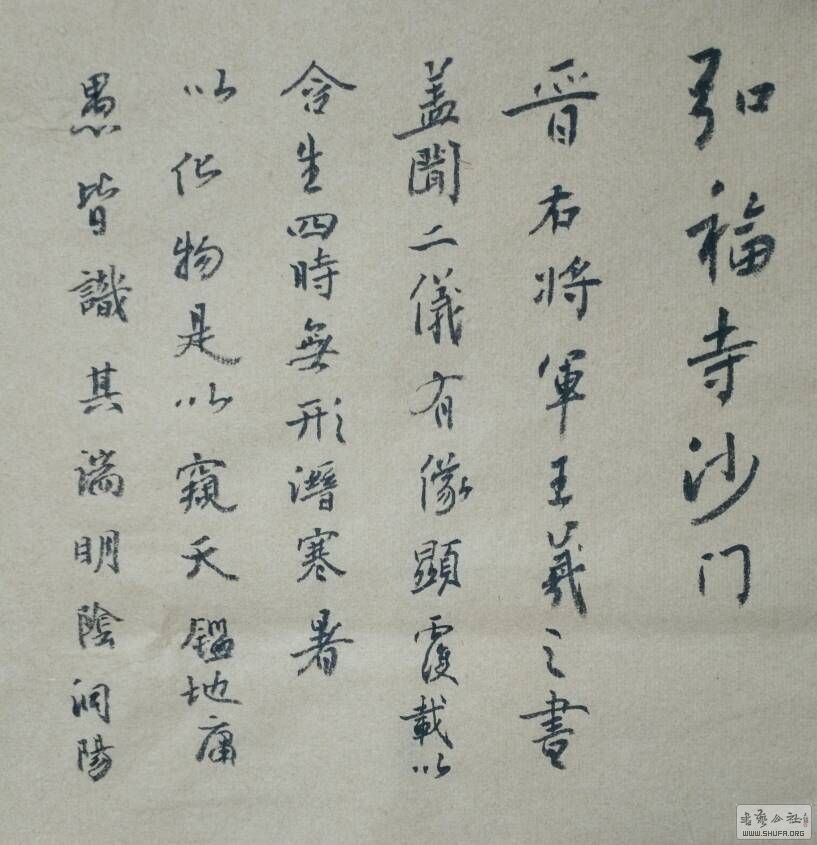 弘福寺沙门
晋右将軍王羲之書
盖聞二儀有像顯覆載以
含生四時無形潛寒暑
以化物是以窺天鑑地庸
愚皆識其端明陰洞陽
书艺公社
WWW.SHUFA.ORG